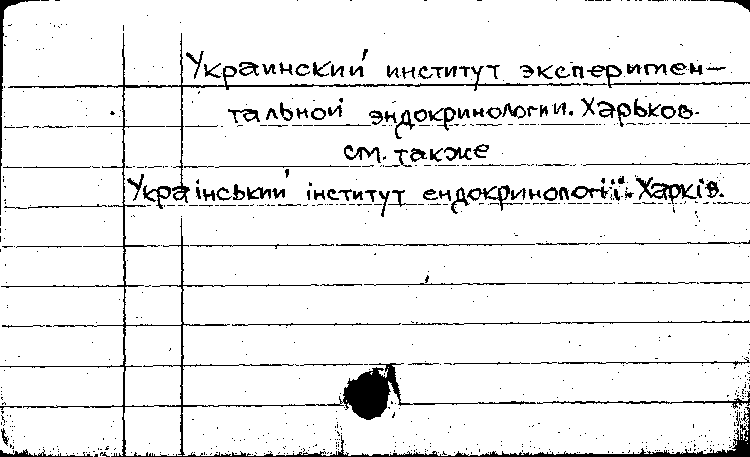 Украинский институт эксперимен-
тальной эндокринологии. Харьков.
см. также
Український інститут ендокринології. Харків.